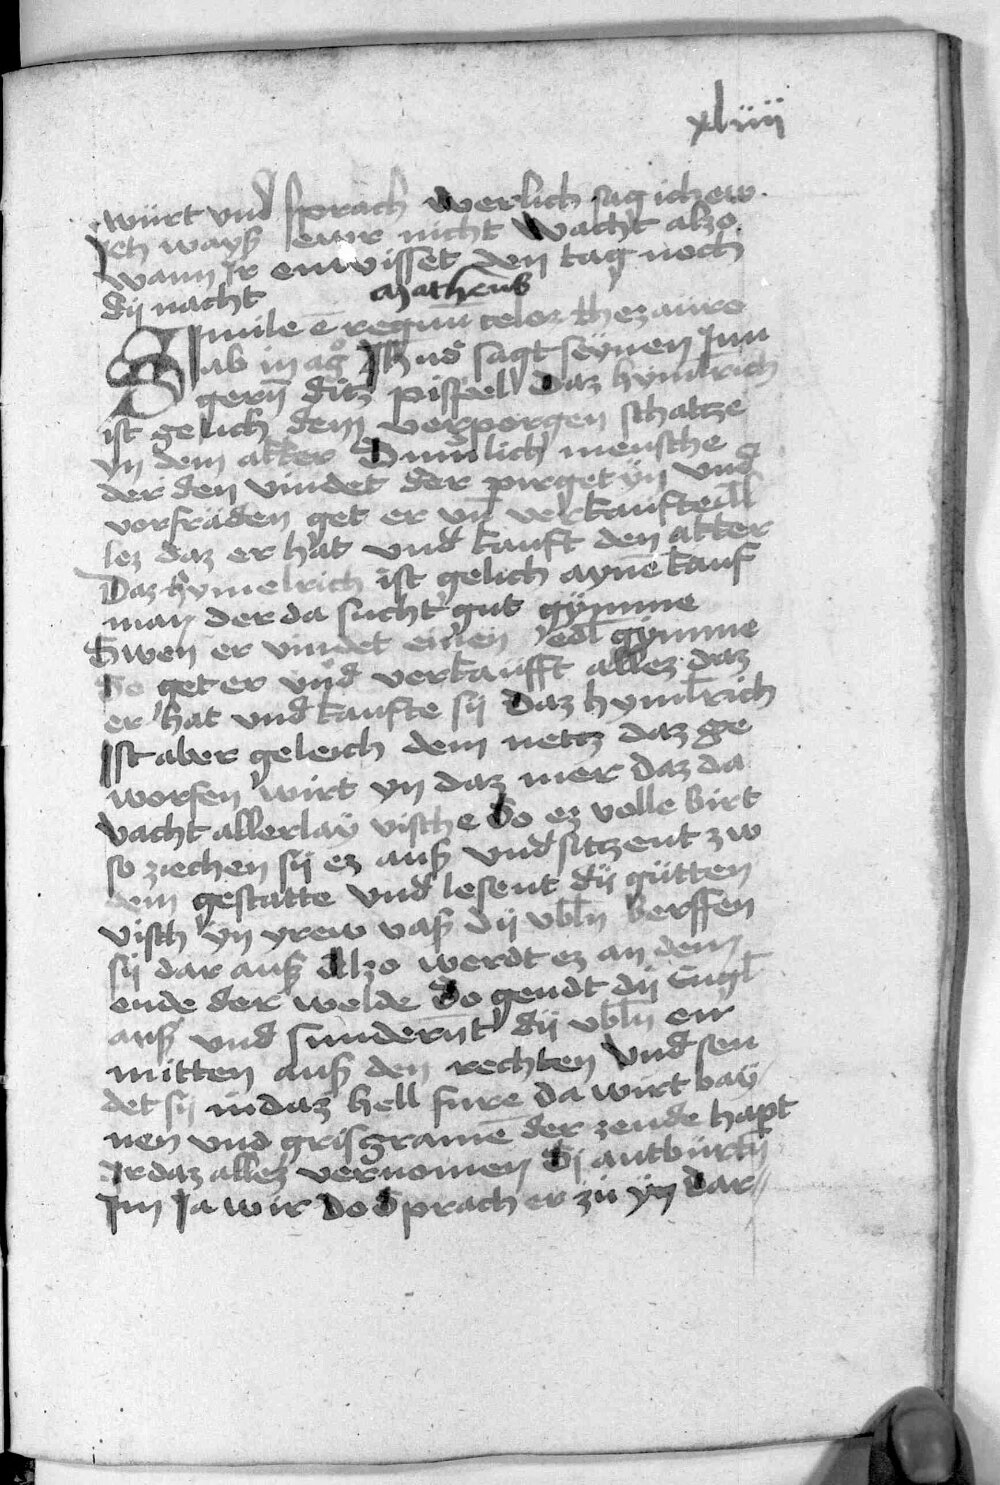 xliiii
würt vnd sprach werlich sag ich ew
Ich ways ewr nicht wacht alzo
wann Ir enwisset den tag noch
dij nacht Matheus
Simile ē regnū celoꝝ thezauro
ab in agͦ Ihus sagt seynen Jun
gern̄ ditz pispel Daz hymlrich
ist gelich dem verporgen schatze
yn dem akker Swelich mensche
der den vindet der pirget yn vnd
vor fräden get er vn̄ verkaufte al
lez daz er hat vnd kauft den akker
Daz hymelrich ist gelich aynē kauf
man der da sucht gut gymme
Swen er vindet einen edl gymme
So get er vnd verkaufft allez daz
er hat vnd kaufte sij Daz hymlrich
Ist aber geleich dem netz daz ge
worfen wirt yn daz mer daz da
vacht allerlay vische So ez volle birt
so ziechen sij ez auß vnd sitzent zw
dem gestatte vnd lesent dij gütten
visch yn yrew vaß dij vbln̄ berffen
sij dar auß Alzo werdt ez an dem
ende der welde So gendt dij Engl
auß vnd sundernt dij vbln̄ en
mitten auß den rechten vnd sen
det sij in daz hell fure da wirt bay
nen vnd grisgramē der zende hapt
Ir daz allez vernomen Si antbürtn̄
Im Ja wir Do Sprach er zü yn Dar